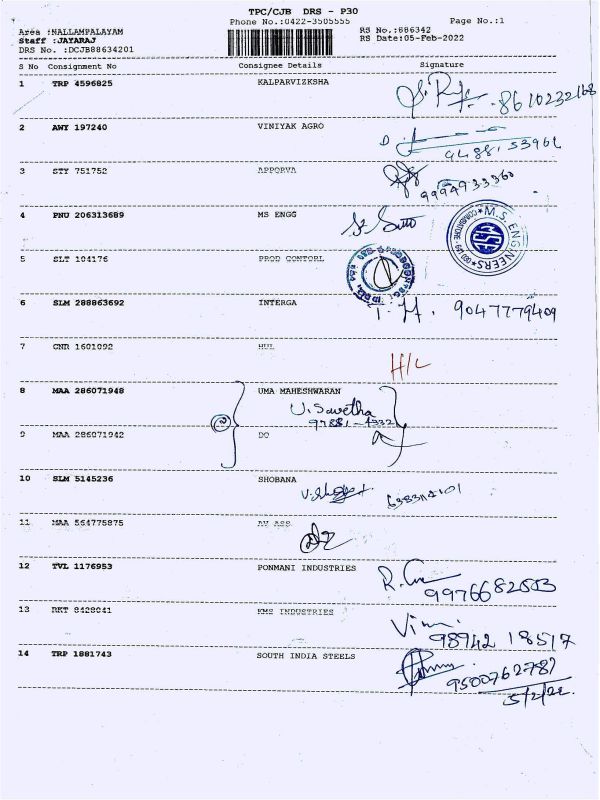 TPC/CJB DRS - P30
Phone No.:0422-3505555 Page No.:1
Area :NALLAMPALAYAM RS No.:886342
Staff :JAYARAJ RS Date:05-Feb-2022
DRS No. :DCJB88634201
S No Consignment No Consignee Details Signature
1 TRP 4596825 KALPARVIZKSHA
8610232168
2 AWY 197240 VINIYAK AGRO
3 STY 751752 APPORVA
9994933360
4 PNU 206313689 MS ENGG
M.S. ENGINEERS
5 SLT 104176 PROD CONTORL
6 SLM 288863692 INTERGA
9047779409
7 CNR 1601092 HUL
H/L
8 MAA 286071948 UMA MAHESHWARAN
U. Swetha
9 MAA 286071942 DO
10 SLM 5145236 SHOBANA
11 MAA 564775875 AV ASS
12 TVL 1176953 PONMANI INDUSTRIES
9976682553
13 RKT 8428041 KMS INDUSTRIES
98942 18517
14 TRP 1881743 SOUTH INDIA STEELS
9500762787
5/2/22